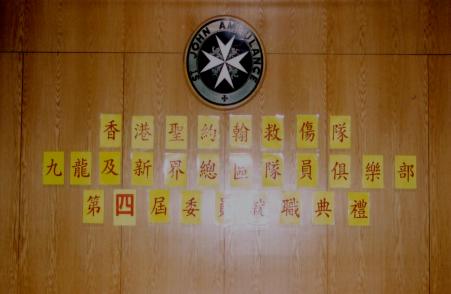 ST JOHN AMBULANCE
香港聖約翰救傷隊
九龍及新界總區隊員俱樂部
第四屆委員就職典禮